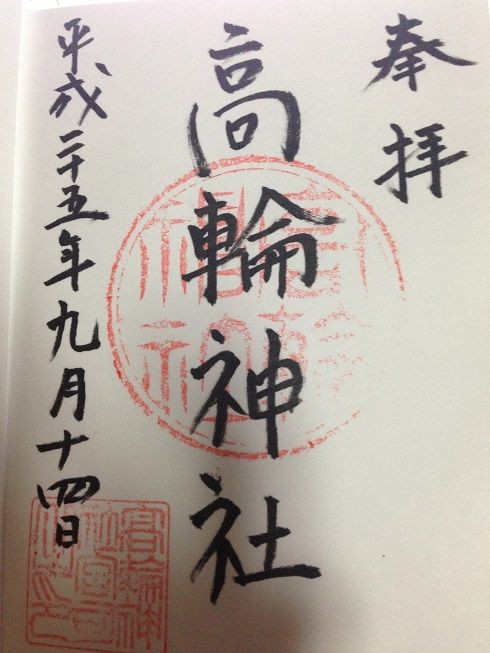 奉拝
高輪神社
平成二十五年九月十四日